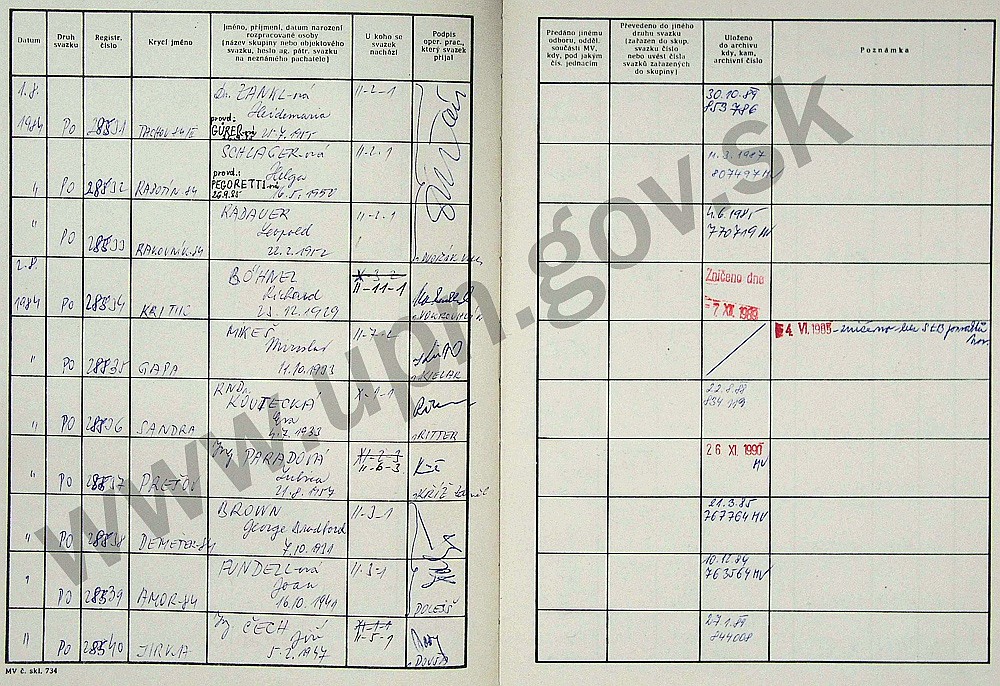 Datum
Druh svazku
Registr. číslo
Krycí jméno
Jméno, příjmení, datum narození rozpracované osoby (název skupiny nebo objektového svazku, heslo ag. pátr. svazku na neznámého pachatele)
U koho se svazek nachází
Podpis oper. prac., který svazek přijal
Předáno jinému odboru, odděl. součásti MV, kdy, pod jakým čís. jednacím
Převedeno do jiného druhu svazku (zařazen do skup. svazku číslo nebo uvést čísla svazků zařazených do skupiny)
Uloženo do archivu kdy, kam, archivní číslo
Poznámka
1.8. 1984 PO 28531 TACHOV-84/E Dr. ZANKL-ná Heidemaria provd.: GÜRER-ná 25.7.1955 II-2-1 30.10.89 853 786
" PO 28532 RADOTÍN-84 SCHLAGER-ná Helga provd.: PEGORETTI-ná 16.5.1958 II-2-1 11.3.1987 807497 MV
" PO 28533 RAKOVNÍK-84 RADAUER Leopold 22.2.1952 II-2-1 4.6.1985 770719 MV
2.8. 1984 PO 28534 KRITIC BÖHNEL Richard 23.12.1929 X-3-2 II-11-1 Zničeno dne 7 XII. 1989
" PO 28535 GAPA MIKEŠ Miroslav 11.10.1933 II-7-2 KIELAR 4 VI. 1985 - zničeno
" PO 28536 SANDRA RNDr. KOUTECKÁ Eva 4.7.1933 X-1-1 RITTER 22.8.88 834 119
" PO 28537 PREŠOV Ing. PARADOVÁ Lubica 21.8.1957 XI-2-3 II-6-3 KŘÍŽ 26 XI. 1990 MV
" PO 28538 DEMETER-84 BROWN George Bradford 7.10.1931 II-3-1 21.3.85 767764 MV
" PO 28539 AMOR-84 FUNDELL-ná Joan 16.10.1941 II-3-1 DOLEJŠ 10.12.84 763564 MV
" PO 28540 JIRKA Ing. ČECH Jiří 5.2.1947 XI-1-1 II-5-1 27.1.89 844008
MV č. skl. 734
www.upn.gov.sk